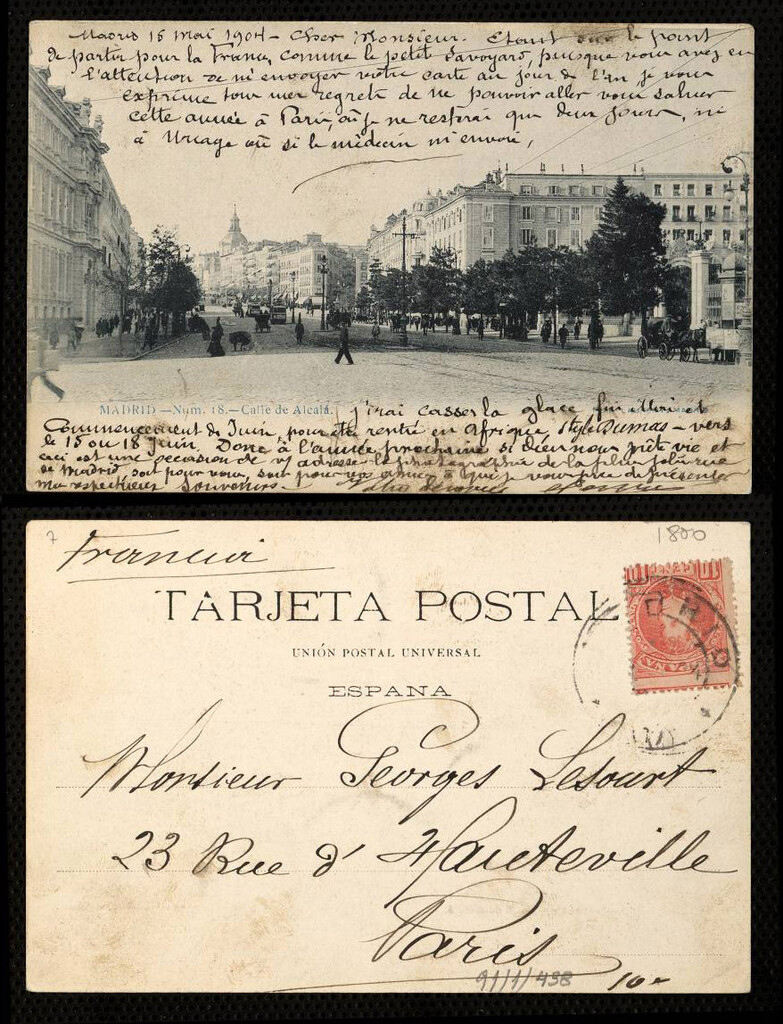 Madrid 15 mai 1904 - Cher Monsieur. Etant sur le point
de partir pour la France, comme le petit savoyard, puisque vous avez eu
l'attention de m'envoyer votre carte au jour de l'an je vous
exprime tous mes regrets de ne pouvoir aller vous saluer
cette année à Paris, où je ne resterai que deux jours, ni
à Uriage où si le médecin m'envoie,
MADRID.—Núm. 18.—Calle de Alcalá.
j'irai casser la glace fin Mai et
Commencement de Juin, pour être rentré en Afrique, style Dumas - vers
le 15 ou 18 Juin. Donc à l'année prochaine si Dieu nous prête vie et
ceci est une occasion de vs adresser la photographie de la plus jolie rue
de Madrid, soit pour vous, soit pour vos amis à qui je vous prie de présenter
mes respectueux souvenirs.
7
1800
Francia
TARJETA POSTAL
UNIÓN POSTAL UNIVERSAL
ESPAÑA
MADRID
Monsieur Georges Lesourt
23 Rue d'Hauteville
Paris
91/1/438
10-